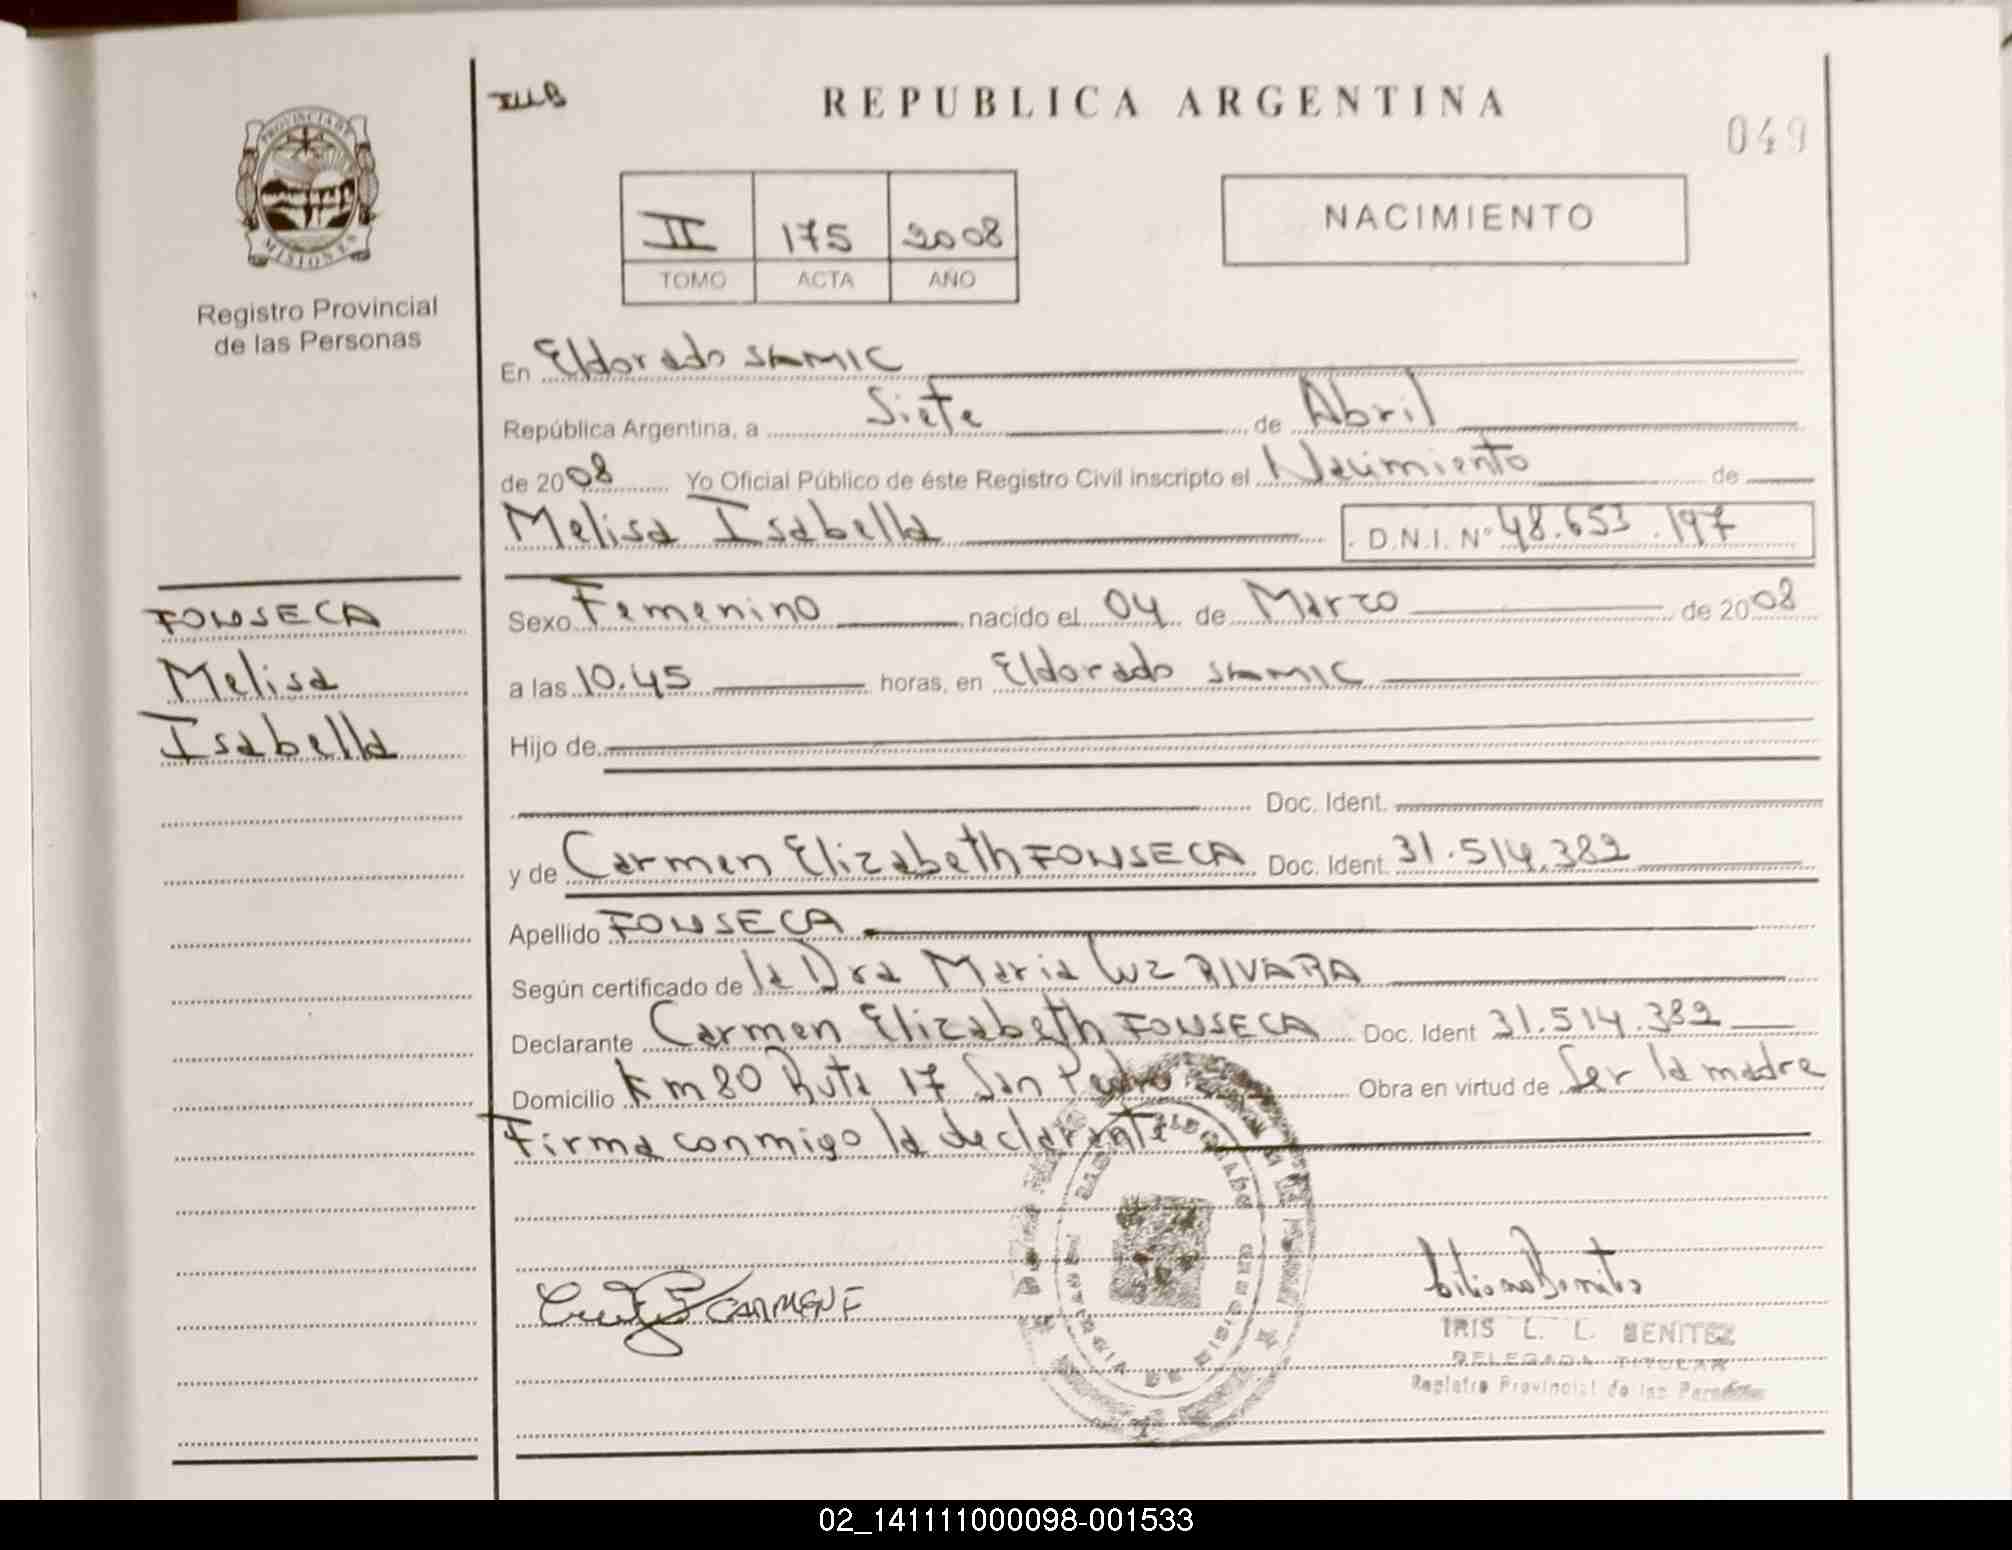 IllB
REPUBLICA ARGENTINA
049
PROVINCIA DE
MISIONES
Registro Provincial
de las Personas
II 175 2008
TOMO ACTA AÑO
NACIMIENTO
En Eldorado SAMIC
República Argentina, a Siete de Abril
de 2008 Yo Oficial Público de éste Registro Civil inscripto el Nacimiento de
Melisa Isabella D.N.I. Nº 48.653.197
FONSECA
Melisa
Isabella
Sexo Femenino nacido el 04 de Marzo de 2008
a las 10.45 horas, en Eldorado SAMIC
Hijo de
Doc. Ident.
y de Carmen Elizabeth FONSECA Doc. Ident. 31.514.382
Apellido FONSECA
Según certificado de la Dra Maria Luz RIVARA
Declarante Carmen Elizabeth FONSECA Doc. Ident 31.514.382
Domicilio Km 80 Ruta 17 San Pedro Obra en virtud de Ser la madre
Firma conmigo la declarante
CARMEN E
IRIS L. L. BENITEZ
DELEGADA TITULAR
Registro Provincial de las Personas
02_141111000098-001533